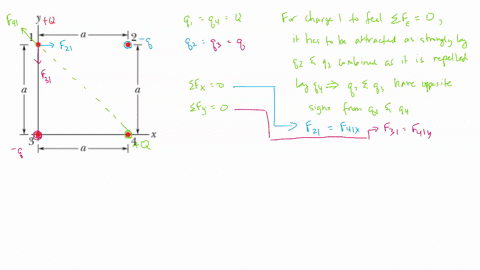 F41
y
+Q
1
a
2
-q
F21
F31
a
a
3
-q
a
4
+Q
x
q1 = q4 = Q
q2 = q3 = q
ΣFx = 0
ΣFy = 0
For charge 1 to feel ΣFE = 0,
it has to be attracted as strongly by
q2 & q3 combined as it is repelled
by q4 ⇒ q2 & q3 have opposite
signs from q1 & q4
F21 = F41x
F31 = F41y